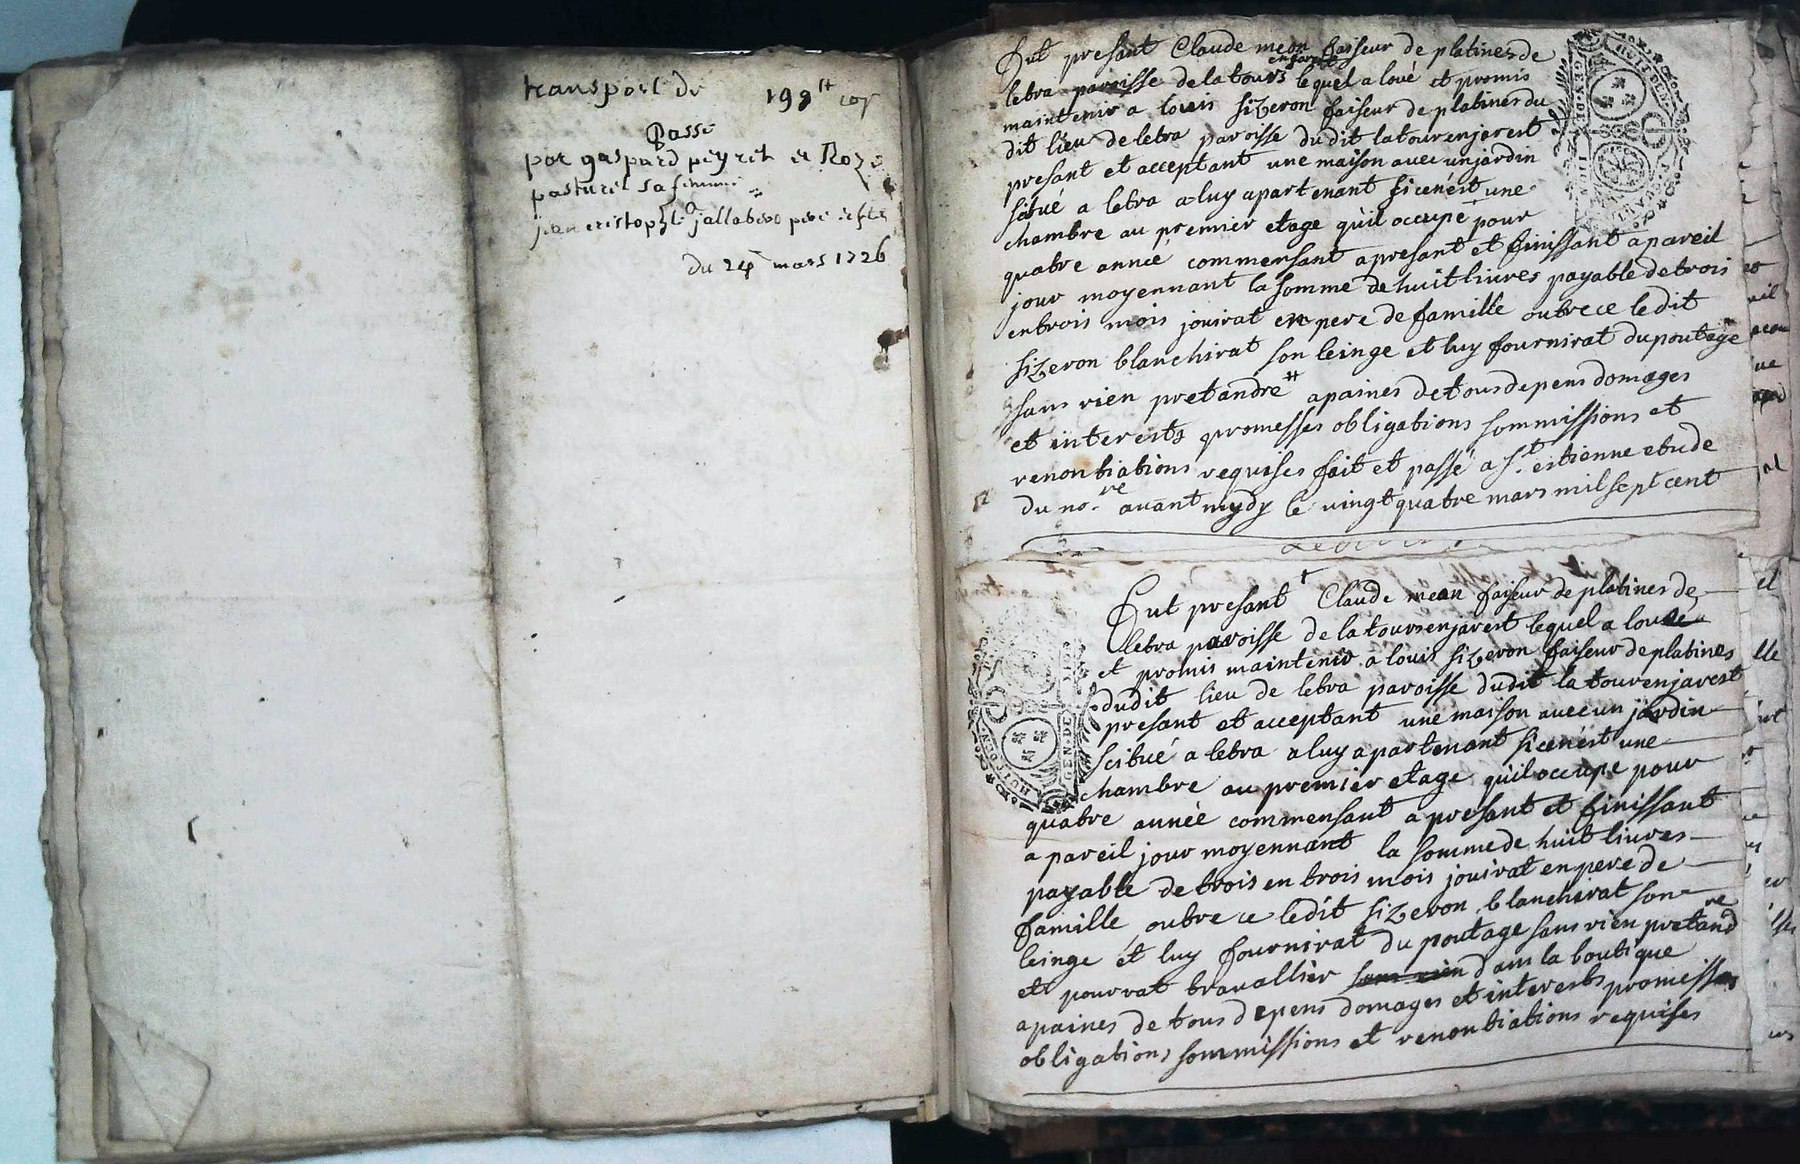 transport de 199# 10s
Passé
par gaspard peyret et Roze
pasturel sa femme
jean cristophle jallabero
du 24e mars 1726
Fut presant Claude mean faiseur de platines de
letra paroisse de la tours enjarest lequel a loué et promis
maintenir a louis sizeron faiseur de platines du
dit lieu de letra paroisse dudit latourenjarest
presant et acceptant une maison avec un jardin
situé a letra a luy apartenant si cenest une
chambre au premier etage qu'il occupe pour
quatre anneé commensant apresant et finissant apareil
jour moyennant la somme de huit livres payable de trois
entrois mois jouirat en pere de famille outre ce ledit
sizeron blanchirat son leinge et luy fournirat du poutage
sans rien pretandre # apaines de tous depens domages
et interests promesses obligations sommissions et
renontiations requises fait et passé a St. estienne etude
du nore. avant mydy le vingt quatre mars mil sept cent
Fut presant Claude mean faiseur de platines de
letra paroisse de la tours enjarest lequel a loué
et promis maintenir a louis sizeron faiseur de platines
dudit lieu de letra paroisse dudit la tourenjarest
presant et acceptant une maison avec un jardin
scitué a letra a luy apartenant si cenest une
chambre au premier etage qu'il occupe pour
quatre anneé commensant a presant et finissant
a pareil jour moyennant la somme de huit livres
payable de trois en trois mois jouirat en pere de
famille outre ce ledit sizeron blanchirat son
leinge et luy fournirat du poutage sans rien pretandre
et pourrat travallier sans rien dans la boutique
apaines de tous depens domages et interests promesses
obligations sommissions et renontiations requises